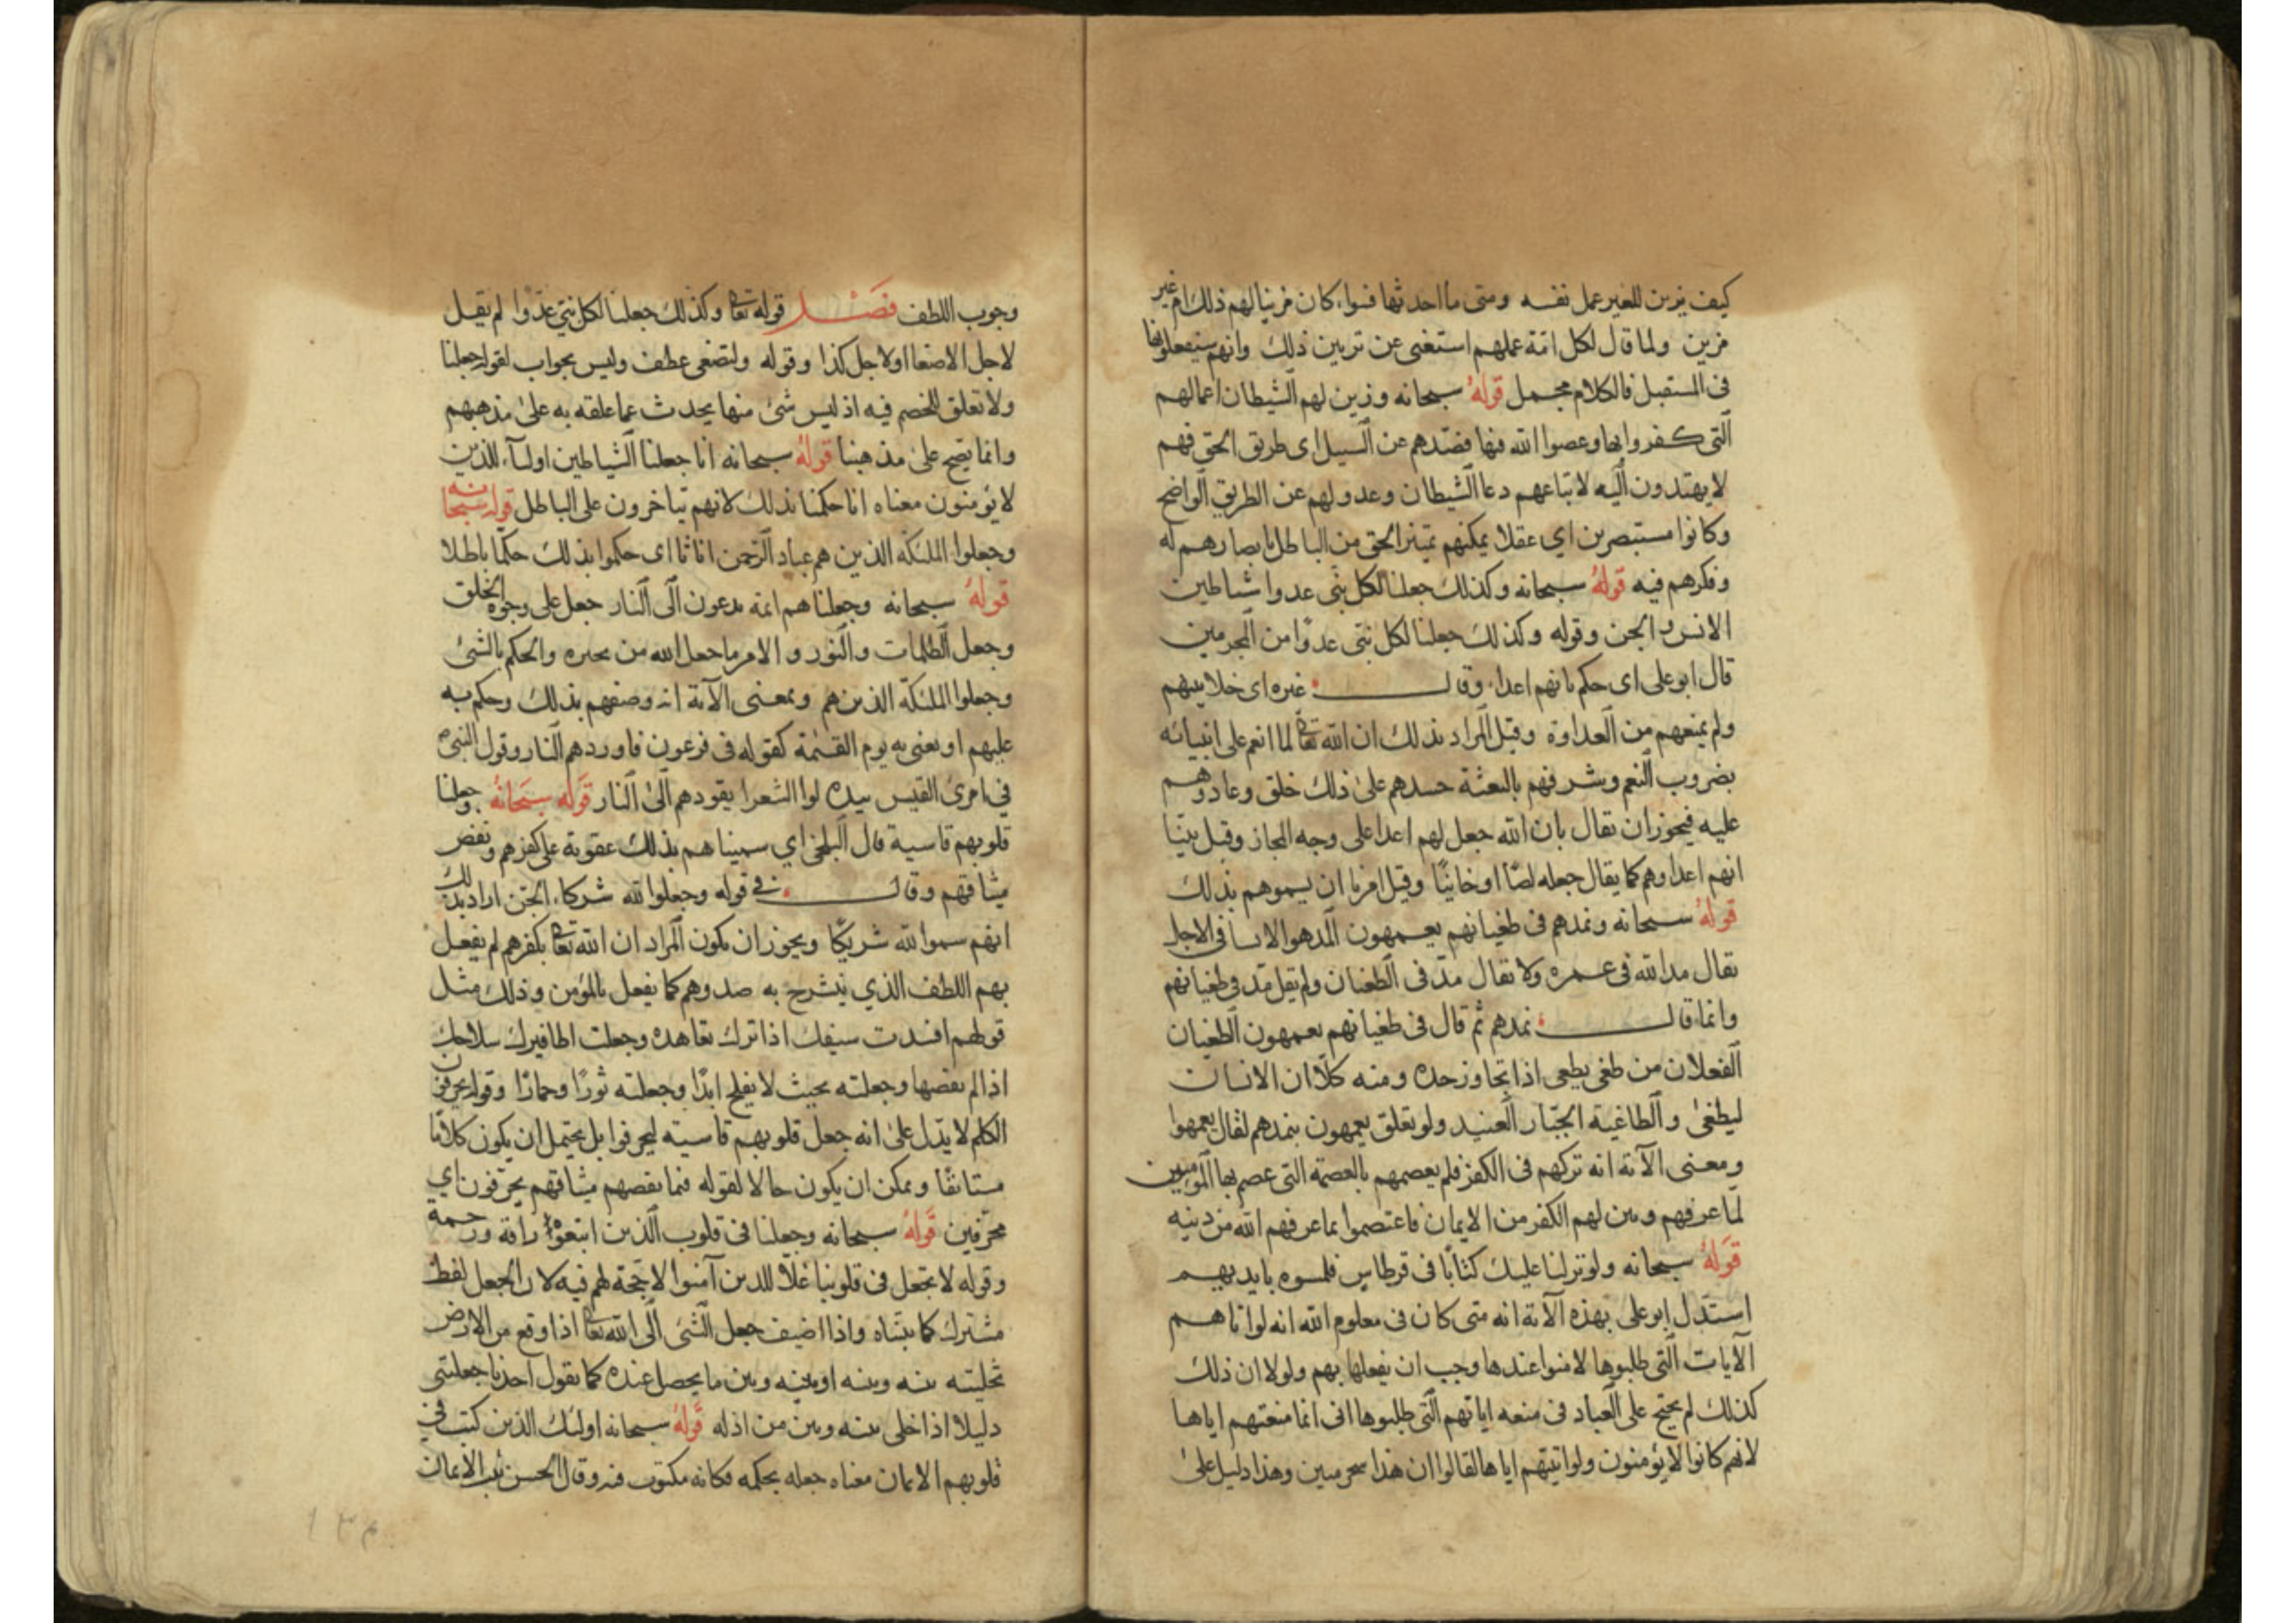 كيف يزين للغير عمل نفسه ومتى ما احدثها فسواء كان مزينا لهم ذلك ام غير
مزين ولما قال لكل امة عملهم استغنى عن تزيين ذلك وانهم سيفعلونها
فى المستقبل فالكلام مجمل قوله سبحانه وزين لهم الشيطان اعمالهم
التى كفروا بها وعصوا الله فيها فصدهم عن السبيل اى طريق الحق فهم
لا يهتدون اليه لاتباعهم دعا الشيطان وعدولهم عن الطريق الواضح
وكانوا مستبصرين اي عقلا يمكنهم تميز الحق من الباطل بابصارهم له
وفكرهم فيه قوله سبحانه وكذلك جعلنا لكل نبى عدوا شياطين
الانس والجن وقوله وكذلك جعلنا لكل نبى عدوًا من المجرمين
قال ابو على اى حكم بانهم اعداء وقال غيره اى خلا بينهم
ولم يمنعهم من العداوة وقيل المراد بذلك ان الله تعالى لما انعم على انبيائه
بضروب النعم وشرفهم بالبعثة حسدهم على ذلك خلق وعادوهم
عليه فيجوز ان يقال بان الله جعل لهم اعدا على وجه المجاز وقيل بينا
انهم اعداوهم كما يقال جعله لصًا او خاينًا وقيل امرنا ان يسموهم بذلك
قوله سبحانه ونمدهم فى طغيانهم يعمهون المد هو الانسا فى الاجل
يقال مد الله فى عمره ولا يقال مد فى الطغيان ولم يقل مد فى طغيانهم
وانما قال نمدهم ثم قال فى طغيانهم يعمهون الطغيان
الفعلان من طغى يطغى اذا تجاوز حده ومنه كلا ان الانسان
ليطغى والطاغية الجبار العنيد ولو تعلق يعمهون بنمدهم لقال يعمهوا
ومعنى الآية انه تركهم فى الكفر فلم يعصمهم بالعصمة التى عصم بها المؤمنين
لما عرفهم وبين لهم الكفر من الايمان فاعتصموا بما عرفهم الله من دينه
قوله سبحانه ولو نزلنا عليك كتابًا فى قرطاس فلمسوه بايديهم
استدل ابو على بهذه الآية انه متى كان فى معلوم الله انه لو اتاهم
الآيات التى طلبوها لامنوا عندها وجب ان يفعلها بهم ولولا ان ذلك
كذلك لم يحتج على العباد فى منعه اياتهم التى طلبوها انى انما منعتهم اياها
لانهم كانوا لا يؤمنون ولو اتيتهم اياها لقالوا ان هذا سحر مبين وهذا دليل على
وجوب اللطف فصل قوله تعالى وكذلك جعلنا لكل نبى عدوا لم يقل
لاجل الاصغا او لاجل كذا وقوله ولتصغى عطف وليس بجواب لقوله جعلنا
ولا تعلق للخصم فيه اذ ليس شئ منها يحدث عما علقه به على مذهبهم
وانما يصح على مذهبنا قوله سبحانه انا جعلنا الشياطين اولياء للذين
لا يؤمنون معناه انا حكمنا بذلك لانهم يتاخرون على الباطل قوله سبحانه
وجعلوا الملئكة الذين هم عباد الرحمن اناثا اى حكموا بذلك حكمًا باطلا
قوله سبحانه وجعلناهم ائمة يدعون الى النار جعل على وجوه الخلق
وجعل الظلمات والنور والامر ما جعل الله من بحيره والحكم بالشئ
وجعلوا الملئكة الذين هم ومعنى الآية انه وصفهم بذلك وحكم به
عليهم او يعنى به يوم القيمة كقوله فى فرعون فاوردهم النار وقول النبى
فى امرئ القيس بيده لوا الشعرا يقودهم الى النار قوله سبحانه وجعلنا
قلوبهم قاسية قال البلخى اي سميناهم بذلك عقوبة على كفرهم ونقض
ميثاقهم وقال فى قوله وجعلوا لله شركاء الجن اراد بذلك
انهم سموا لله شريكًا ويجوز ان يكون المراد ان الله تعالى بكفرهم لم يفعل
بهم اللطف الذي ينشرح به صدوهم كما يفعل بالمؤمن وذلك مثل
قولهم افسدت سيفك اذا ترك تعاهده وجعلت اظافيرك سلاحك
اذا لم يقصها وجعلته بحيث لا يفلح ابدًا وجعلته ثورًا وحمارًا وقوله يحرفون
الكلم لا يدل على انه جعل قلوبهم قاسية ليحرفوا بل يحتمل ان يكون كلامًا
مستانفًا ويمكن ان يكون حالا لقوله فبما نقضهم ميثاقهم يحرفون اي
محرفين قوله سبحانه وجعلنا فى قلوب الذين اتبعوه رافة ورحمة
وقوله لا تجعل فى قلوبنا غلا للذين آمنوا لا حجة لهم فيه لان الجعل لفظ
مشترك كما بيناه واذا اضيف جعل الشئ الى الله تعالى اذا وقع من الارض
تخليته بينه وبينه او بينه وبين ما يحصل عنده كما يقول احدنا جعلتنى
دليلا اذا خلى بينه وبين من اذله قوله سبحانه اولئك الذين كتب فى
قلوبهم الايمان معناه جعله بحكمه فكانه مكتوب فيه وقال الحسن ثبت الايمان